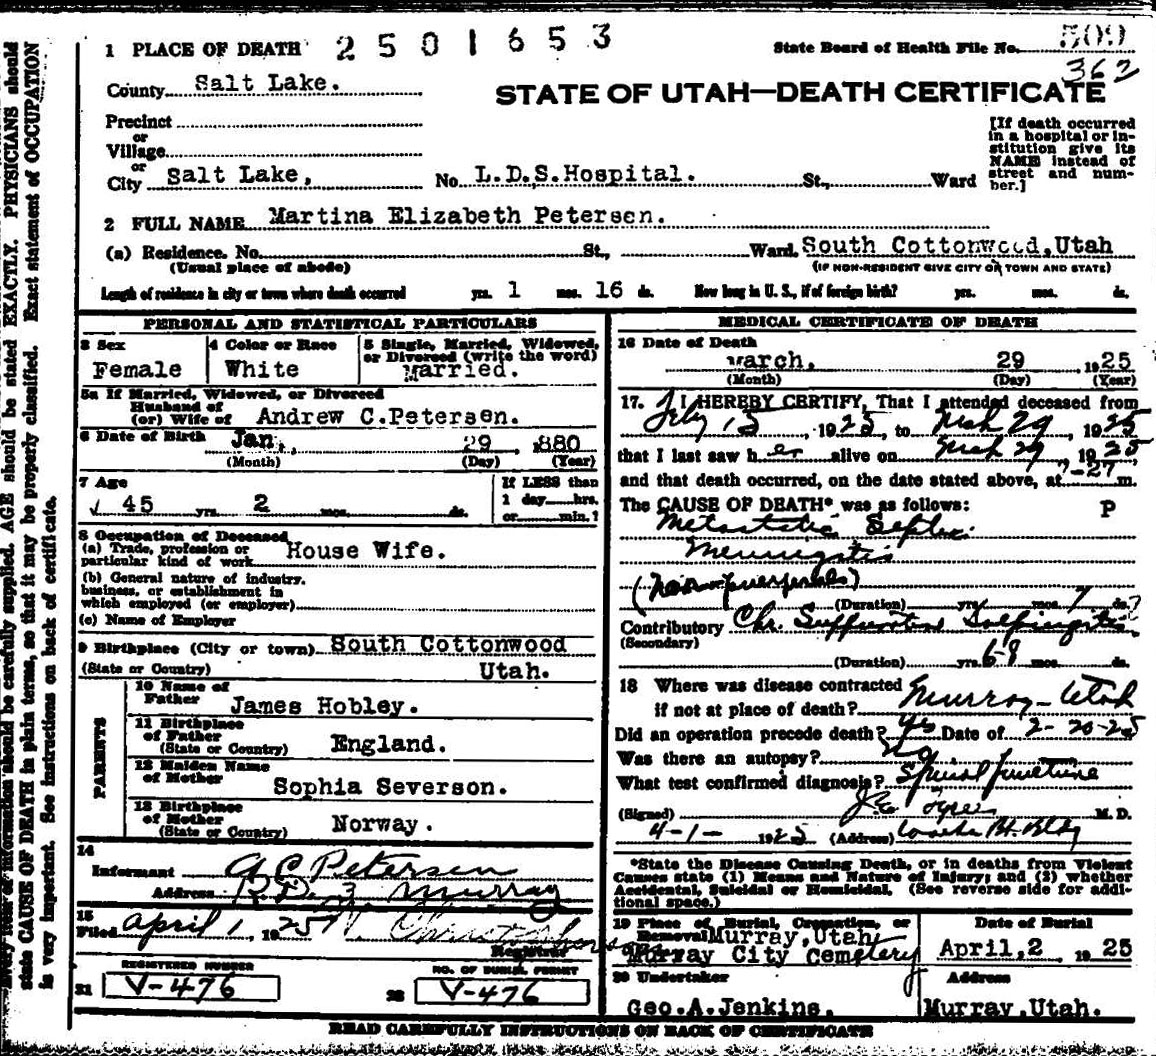 1 PLACE OF DEATH 2501653 State Board of Health File No. 509
362
County Salt Lake.
STATE OF UTAH—DEATH CERTIFICATE
Precinct
or
Village
or
City Salt Lake, No. L.D.S.Hospital. St., Ward
[If death occurred
in a hospital or in-
stitution give its
NAME instead of
street and num-
ber.]
2 FULL NAME Martina Elizabeth Petersen.
(a) Residence. No. St., Ward. South Cottonwood, Utah
(Usual place of abode) (IF NON-RESIDENT GIVE CITY OR TOWN AND STATE)
Length of residence in city or town where death occurred yrs. 1 mos. 16 ds. How long in U. S., if of foreign birth? yrs. mos. ds.
PERSONAL AND STATISTICAL PARTICULARS
3 Sex
Female
4 Color or Race
White
5 Single, Married, Widowed,
or Divorced (write the word)
Married.
5a If Married, Widowed, or Divorced
Husband of
(or) Wife of Andrew C.Petersen.
6 Date of Birth Jan. 29 1880
(Month) (Day) (Year)
7 Age
45 yrs. 2 mos. ds.
If LESS than
1 day hrs.
or min.?
8 Occupation of Deceased
(a) Trade, profession or
particular kind of work House Wife.
(b) General nature of industry,
business, or establishment in
which employed (or employer)
(c) Name of Employer
9 Birthplace (City or town) South Cottonwood
(State or Country) Utah.
PARENTS
10 Name of
Father James Hobley.
11 Birthplace
of Father
(State or Country) England.
12 Maiden Name
of Mother
Sophia Severson.
13 Birthplace
of Mother
(State or Country) Norway.
14
Informant A C Petersen
Address R.D. Murray
15
Filed April 1, 1925
Registrar
REGISTERED NUMBER
21 V-476
NO. OF BURIAL PERMIT
22 V-476
MEDICAL CERTIFICATE OF DEATH
16 Date of Death
March, 29 1925
(Month) (Day) (Year)
17. I HEREBY CERTIFY, That I attended deceased from
Feby 15, 1925, to Mch 29, 1925
that I last saw her alive on Mch 29, 1925
and that death occurred, on the date stated above, at 7-27 m.
The CAUSE OF DEATH* was as follows: P
Metastatic Septic
Meningitis
(Non-puerperal)
(Duration) yrs. mos. 7 ds.
Contributory Chr. Suppurative Salpingitis
(Secondary)
(Duration) yrs. 6-8 mos. ds.
18 Where was disease contracted
if not at place of death? Murray-Utah
Did an operation precede death? Yes Date of 2-20-25
Was there an autopsy? No
What test confirmed diagnosis? Spinal puncture
(Signed) M. D.
4-1- 1925 (Address) Bldg
*State the Disease Causing Death, or in deaths from Violent
Causes state (1) Means and Nature of Injury; and (2) whether
Accidental, Suicidal or Homicidal. (See reverse side for addi-
tional space.)
19 Place of Burial, Cremation, or
Removal Murray, Utah
Murray City Cemetery
Date of Burial
April, 2, 1925
20 Undertaker
Geo.A.Jenkins.
Address
Murray, Utah.
READ CAREFULLY INSTRUCTIONS ON BACK OF CERTIFICATE
information should be carefully supplied. AGE should be stated EXACTLY. PHYSICIANS should
state CAUSE OF DEATH in plain terms, so that it may be properly classified. Exact statement of OCCUPATION
is very important. See instructions on back of certificate.